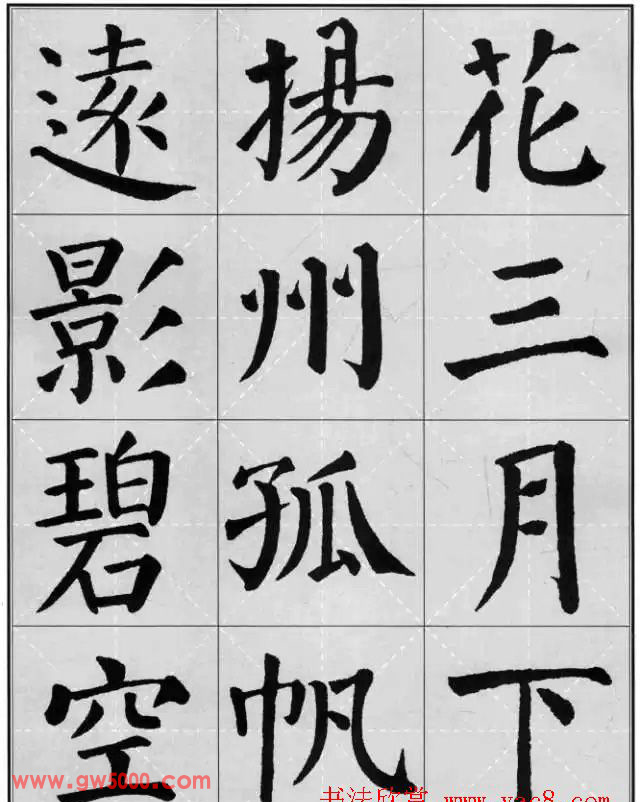 花三月下
揚州孤帆
遠影碧空
www.gw5000.com
书法欣赏 www.yac8.com